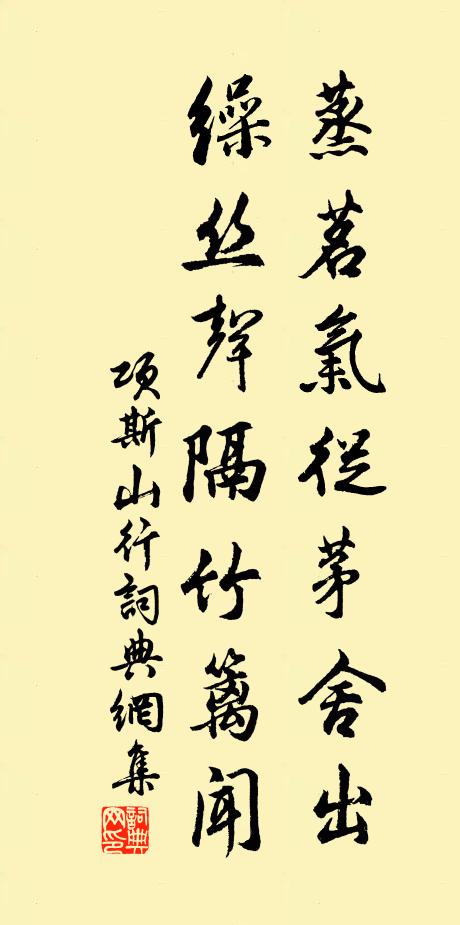 蒸茗氣從茅舍出
繰丝聲隔竹籬聞
項斯山行詞典網集
詞典網印